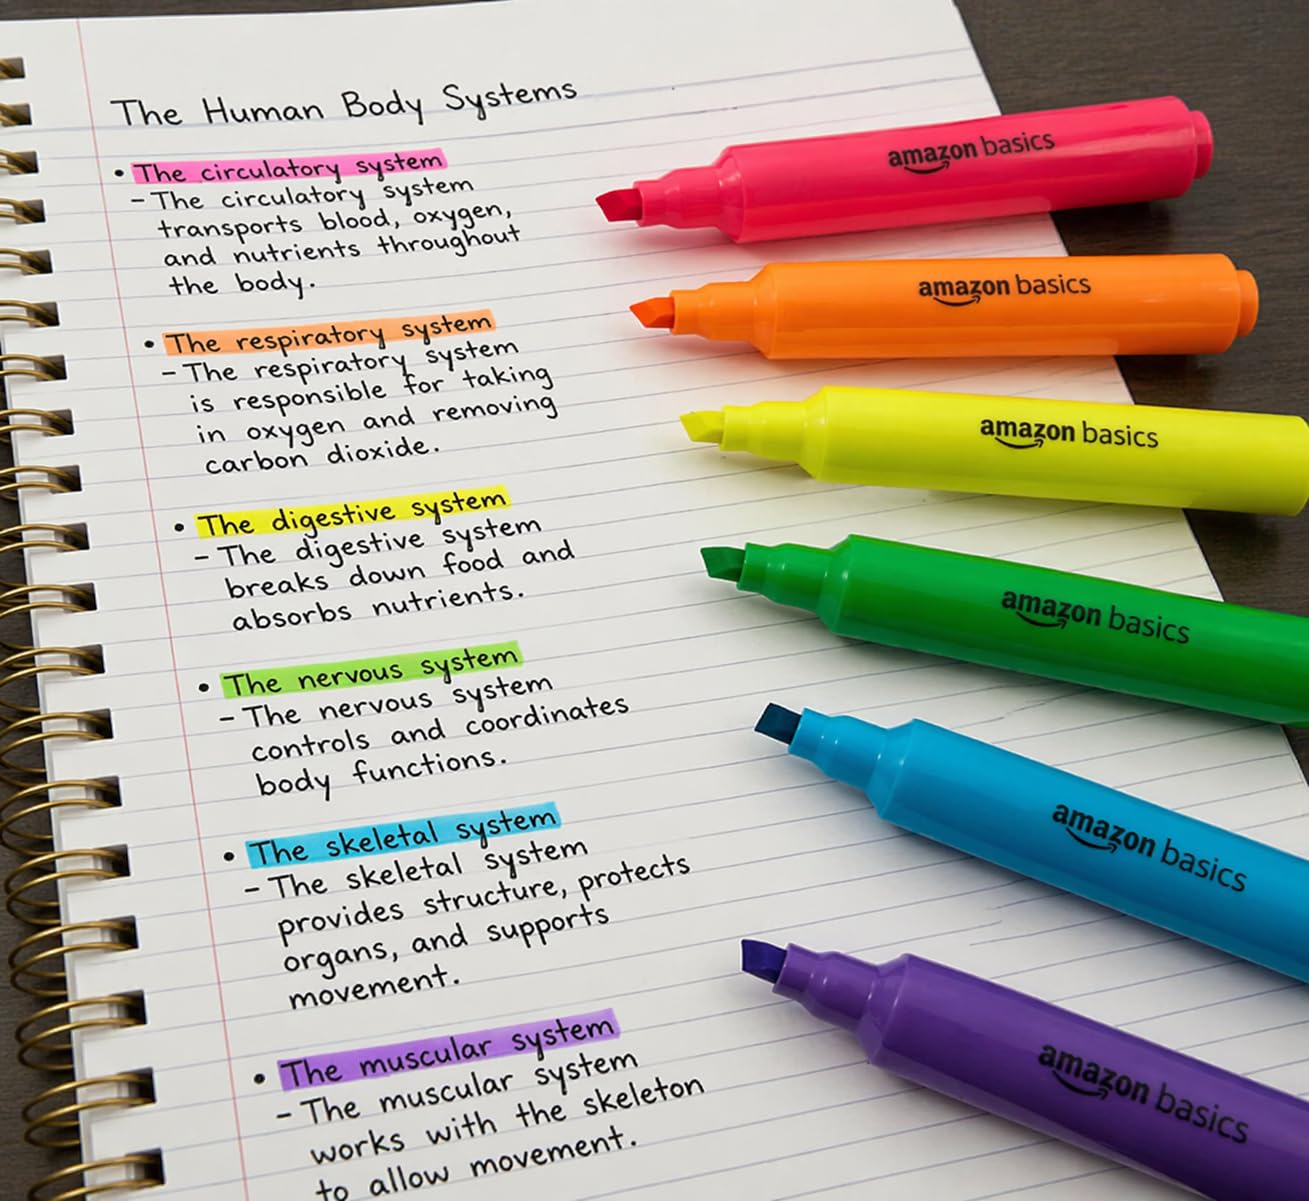 The Human Body Systems
• The circulatory system
– The circulatory system
transports blood, oxygen,
and nutrients throughout
the body.
• The respiratory system
– The respiratory system
is responsible for taking
in oxygen and removing
carbon dioxide.
• The digestive system
– The digestive system
breaks down food and
absorbs nutrients.
• The nervous system
– The nervous system
controls and coordinates
body functions.
• The skeletal system
– The skeletal system
provides structure, protects
organs, and supports
movement.
• The muscular system
– The muscular system
works with the skeleton
to allow movement.
amazon basics
amazon basics
amazon basics
amazon basics
amazon basics
amazon basics